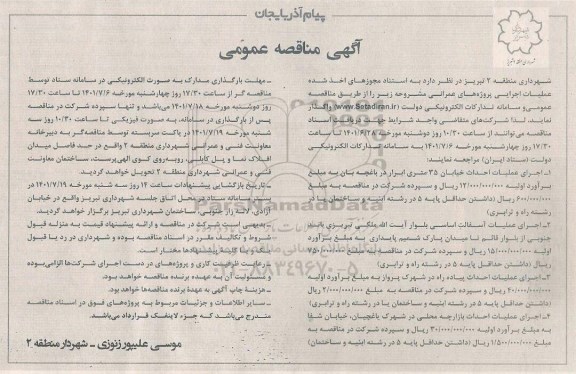 پیام آذربایجان
آگهی مناقصه عمومی
شهرداری منطقه ۲ تبریز در نظر دارد به استناد مجوزهای اخذ شده
عملیات اجرایی پروژه‌های عمرانی مشروحه زیر را از طریق مناقصه
عمومی و سامانه تدارکات الکترونیکی دولت (www.Setadiran.ir) واگذار
نمایند، لذا شرکت‌های متقاضی واجد شرایط جهت دریافت اسناد
مناقصه می‌توانند از ساعت ۱۰/۳۰ روز دوشنبه مورخه ۱۴۰۱/۶/۲۸ تا ساعت
۱۷/۳۰ روز چهارشنبه مورخه ۱۴۰۱/۷/۶ به سامانه تدارکات الکترونیکی
دولت (ستاد ایران) مراجعه نمایند:
۱ـ اجرای عملیات احداث خیابان ۳۵ متری ابزار در باغچه بان به مبلغ
برآورد اولیه ۱۲/۰۰۰/۰۰۰/۰۰۰ ریال و سپرده شرکت در مناقصه به مبلغ
۶۰۰/۰۰۰/۰۰۰ ریال (داشتن حداقل پایه ۵ در رشته ابنیه و ساختمان یا در
رشته راه و ترابری)
۲ـ اجرای عملیات آسفالت اساسی بلوار آیت الله ملکی تبریزی باند
جنوبی از بلوار قائم تا میدان پارک شمیم پایداری به مبلغ برآورد
اولیه ۱۵/۰۰۰/۰۰۰/۰۰۰ ریال و سپرده شرکت در مناقصه به مبلغ ۷۵۰/۰۰۰/۰۰۰
ریال (داشتن حداقل پایه ۵ در رشته راه و ترابری)
۳ـ اجرای عملیات احداث پیاده راه در شهرک پرواز به مبلغ برآورد اولیه
۴۰/۰۰۰/۰۰۰/۰۰۰ ریال و سپرده شرکت در مناقصه به مبلغ ۲/۰۰۰/۰۰۰/۰۰۰ ریال
(داشتن حداقل پایه ۵ در رشته ابنیه و ساختمان یا در رشته راه و ترابری)
۴ـ اجرای عملیات احداث بازارچه محلی در شهرک باغچیان، خیابان شفا
به مبلغ برآورد اولیه ۳۰/۰۰۰/۰۰۰/۰۰۰ ریال و سپرده شرکت در مناقصه به
مبلغ ۱/۵۰۰/۰۰۰/۰۰۰ ریال (داشتن حداقل پایه ۵ در رشته ابنیه و ساختمان)
ـ مهلت بارگذاری مدارک به صورت الکترونیکی در سامانه ستاد توسط
مناقصه گر از ساعت ۱۷/۳۰ روز چهارشنبه مورخه ۱۴۰۱/۷/۶ تا ساعت ۱۷/۳۰
روز دوشنبه مورخه ۱۴۰۱/۷/۱۸ می‌باشد و تنها سپرده شرکت در مناقصه
پس از بارگذاری در سامانه، به صورت فیزیکی تا ساعت ۱۰/۳۰ روز سه
شنبه مورخه ۱۴۰۱/۷/۱۹ در پاکت سربسته توسط مناقصه‌گر به دبیرخانه
معاونت فنی و عمرانی شهرداری منطقه ۲ واقع در حد فاصل میدان
افلاک نما و پل کابلی، روبه‌روی کوی الهی‌پرست، ساختمان معاونت
فنی و عمرانی شهرداری منطقه ۲ تحویل خواهد گردید.
ـ تاریخ بازگشایی پیشنهادات ساعت ۱۴ روز سه شنبه مورخه ۱۴۰۱/۷/۱۹ در
سامانه ستاد در محل اتاق جلسه شهرداری تبریز واقع در خیابان
آزادی، لاله زار جنوبی، ساختمان شهرداری تبریز برگزار خواهد گردید.
ـ بدیهی است شرکت در مناقصه و ارائه پیشنهاد قیمت به منزله قبول
شروط و تکالیف مقرر در اسناد مناقصه بوده و شهرداری در رد یا قبول
یک و یا کلیه پیشنهادها مختار است.
ـ رعایت ظرفیت کاری و پروژه‌های در دست اجرای شرکت‌ها الزامی بوده
و مسئولیت آن به عهده برنده مناقصه خواهد بود.
ـ هزینه چاپ آگهی به عهدهٔ برنده مناقصه‌ها خواهد بود.
ـ سایر اطلاعات و جزئیات مربوط به پروژه‌های فوق در اسناد مناقصه
مندرج می‌باشد که جزء لاینفک قرارداد می‌باشد.
موسی علیپور زنوزی ـ شهردار منطقه ۲
ParsNamadData
۰۲۱-۸۸۳۴۹۶۷۰-۵